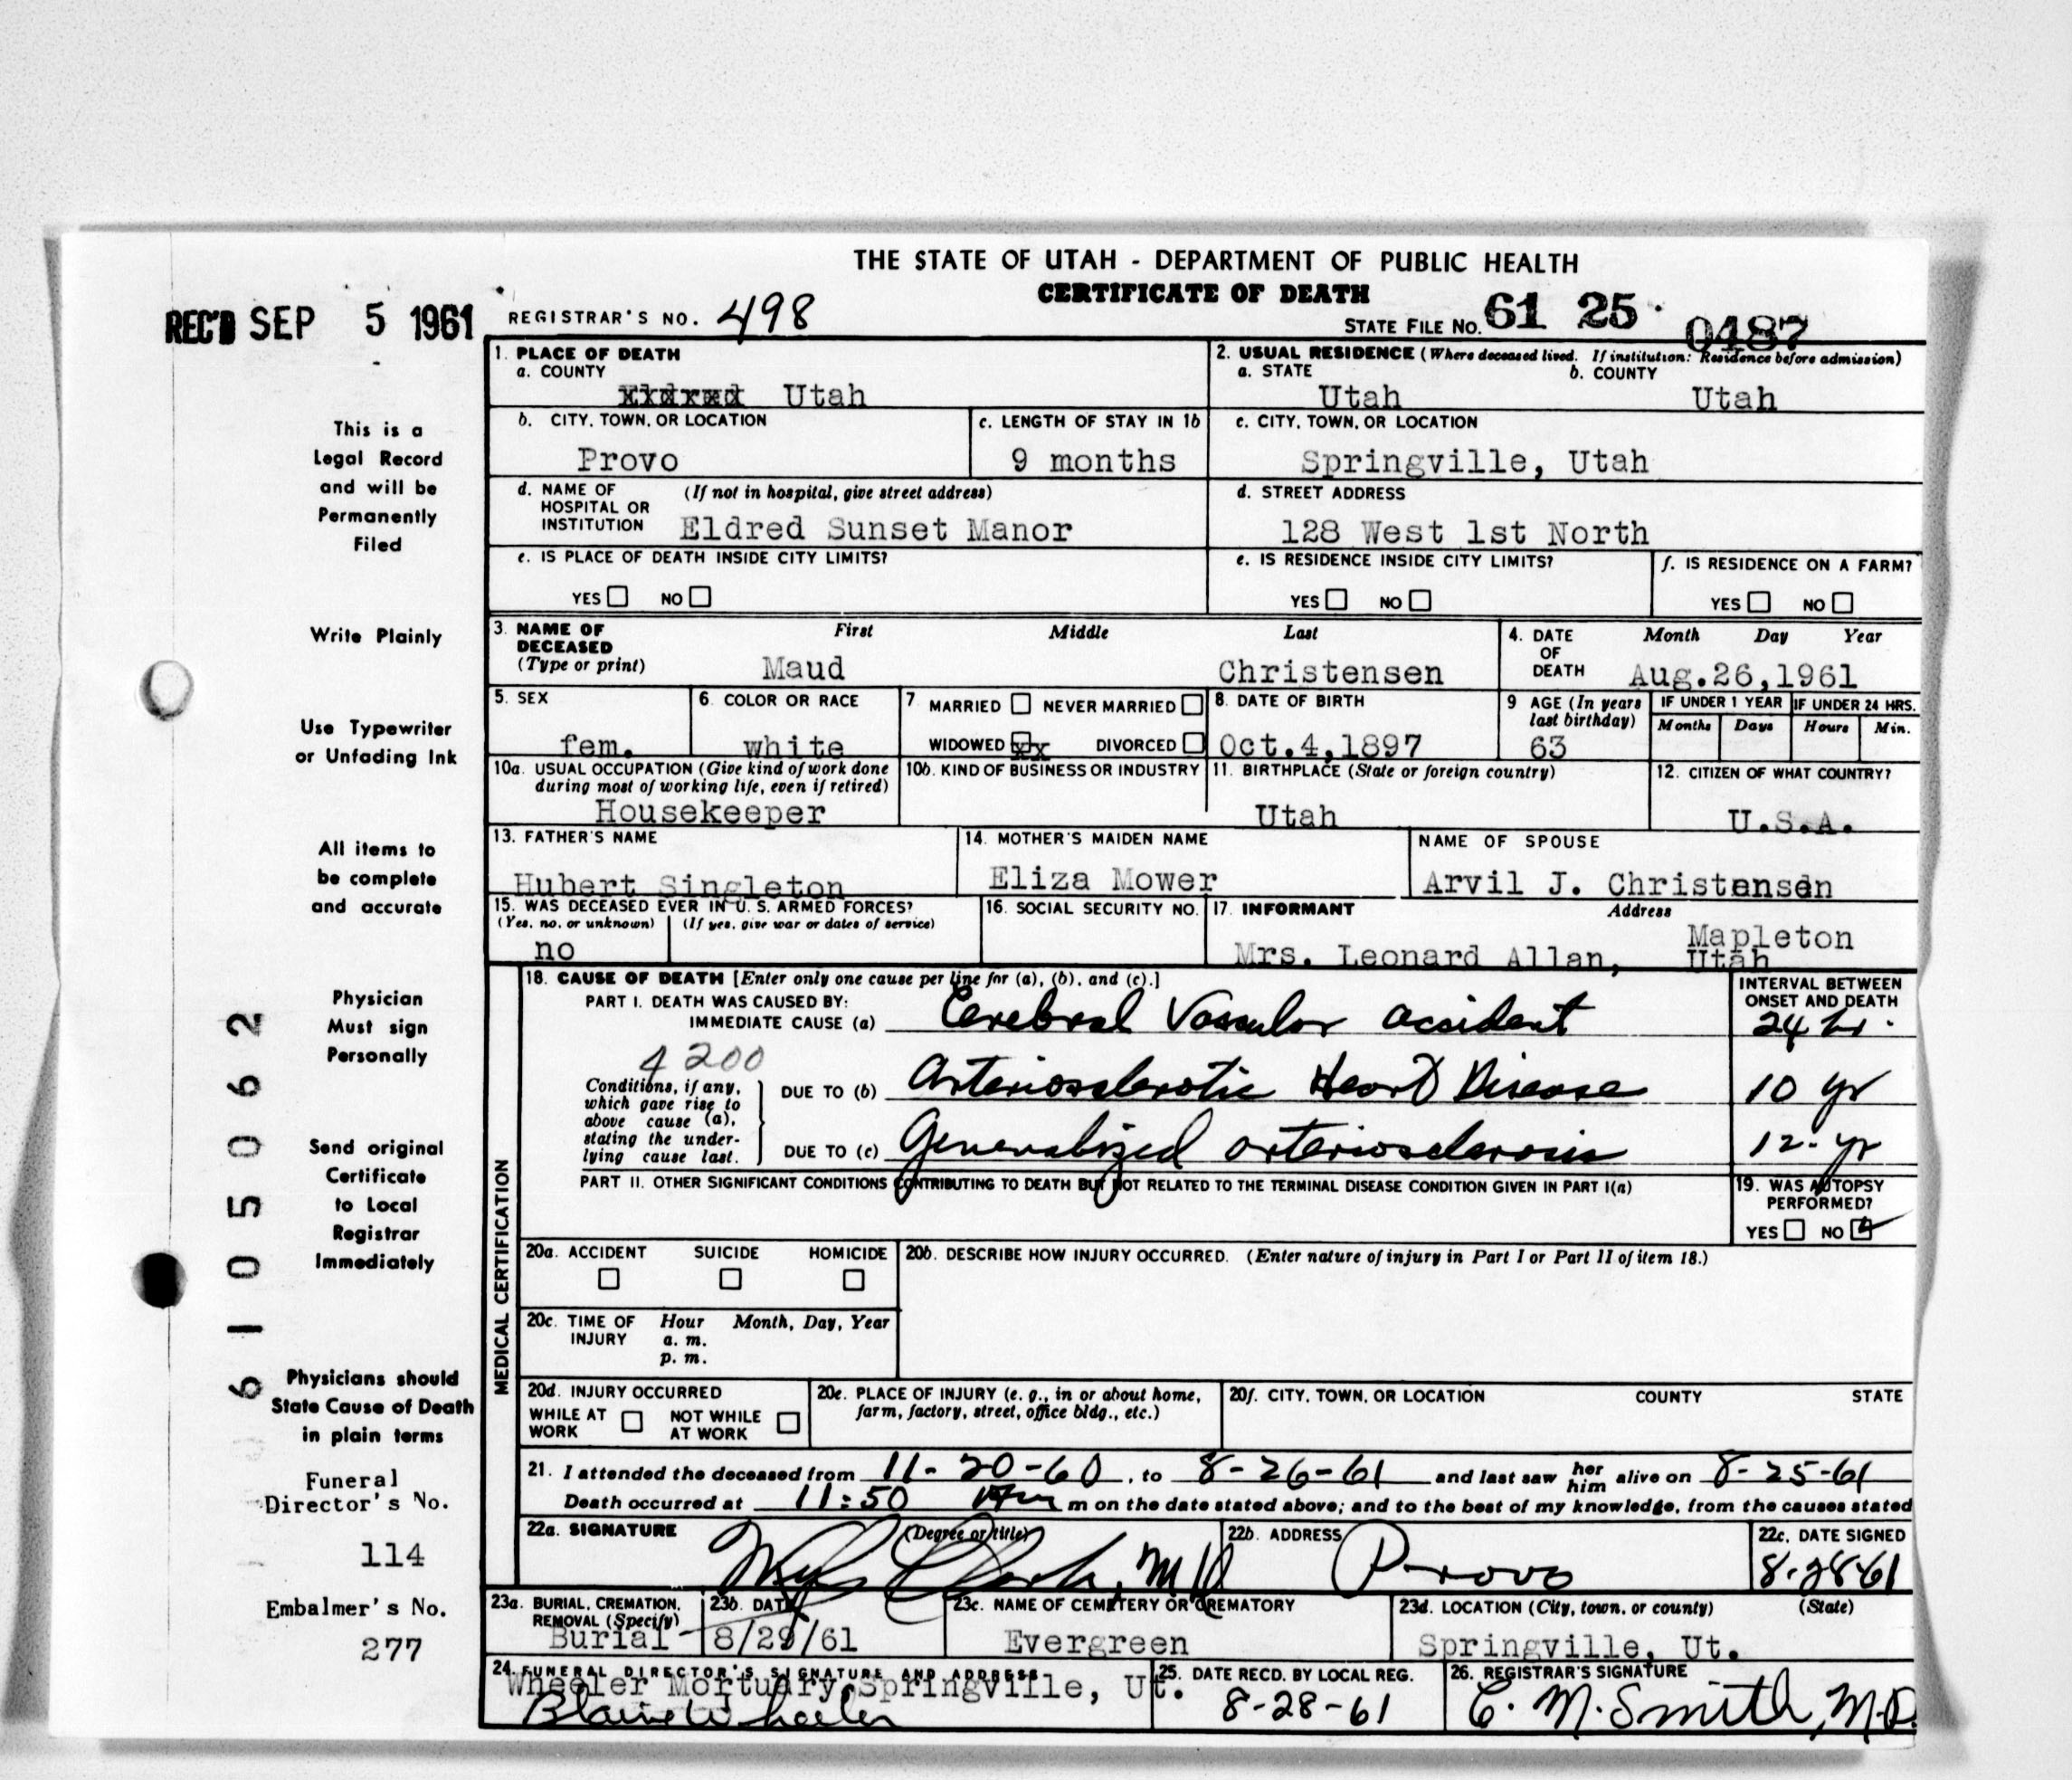 THE STATE OF UTAH - DEPARTMENT OF PUBLIC HEALTH
CERTIFICATE OF DEATH
REC'D SEP 5 1961
REGISTRAR'S NO. 498
STATE FILE NO. 61 25 0487
1. PLACE OF DEATH
a. COUNTY
Utah
2. USUAL RESIDENCE (Where deceased lived. If institution: Residence before admission)
a. STATE b. COUNTY
Utah Utah
b. CITY, TOWN, OR LOCATION
Provo
c. LENGTH OF STAY IN 1b
9 months
c. CITY, TOWN, OR LOCATION
Springville, Utah
d. NAME OF (If not in hospital, give street address)
HOSPITAL OR
INSTITUTION Eldred Sunset Manor
d. STREET ADDRESS
128 West 1st North
e. IS PLACE OF DEATH INSIDE CITY LIMITS?
YES NO
e. IS RESIDENCE INSIDE CITY LIMITS?
YES NO
f. IS RESIDENCE ON A FARM?
YES NO
3. NAME OF First Middle Last
DECEASED
(Type or print) Maud Christensen
4. DATE Month Day Year
OF
DEATH Aug.26,1961
5. SEX
fem.
6. COLOR OR RACE
white
7 MARRIED NEVER MARRIED
WIDOWED xx DIVORCED
8. DATE OF BIRTH
Oct.4,1897
9 AGE (In years
last birthday)
63
IF UNDER 1 YEAR IF UNDER 24 HRS.
Months Days Hours Min.
10a. USUAL OCCUPATION (Give kind of work done
during most of working life, even if retired)
Housekeeper
10b. KIND OF BUSINESS OR INDUSTRY
11. BIRTHPLACE (State or foreign country)
Utah
12. CITIZEN OF WHAT COUNTRY?
U.S.A.
13. FATHER'S NAME
Hubert Singleton
14. MOTHER'S MAIDEN NAME
Eliza Mower
NAME OF SPOUSE
Arvil J. Christensen
15. WAS DECEASED EVER IN U. S. ARMED FORCES?
(Yes, no, or unknown) (If yes, give war or dates of service)
no
16. SOCIAL SECURITY NO.
17. INFORMANT Address
Mrs. Leonard Allan, Mapleton
Utah
MEDICAL CERTIFICATION
18. CAUSE OF DEATH [Enter only one cause per line for (a), (b), and (c).]
PART I. DEATH WAS CAUSED BY:
IMMEDIATE CAUSE (a) Cerebral Vascular accident
INTERVAL BETWEEN
ONSET AND DEATH
24 hr.
4200
Conditions, if any,
which gave rise to
above cause (a),
stating the under-
lying cause last.
DUE TO (b) Arteriosclerotic Heart Disease 10 yr
DUE TO (c) Generalized arteriosclerosis 12-yr
PART II. OTHER SIGNIFICANT CONDITIONS CONTRIBUTING TO DEATH BUT NOT RELATED TO THE TERMINAL DISEASE CONDITION GIVEN IN PART I(a)
19. WAS AUTOPSY
PERFORMED?
YES NO
20a. ACCIDENT SUICIDE HOMICIDE
20b. DESCRIBE HOW INJURY OCCURRED. (Enter nature of injury in Part I or Part II of item 18.)
20c. TIME OF Hour Month, Day, Year
INJURY a. m.
p. m.
20d. INJURY OCCURRED
WHILE AT NOT WHILE
WORK AT WORK
20e. PLACE OF INJURY (e. g., in or about home,
farm, factory, street, office bldg., etc.)
20f. CITY, TOWN, OR LOCATION COUNTY STATE
21. I attended the deceased from 11-20-60, to 8-26-61 and last saw her him alive on 8-25-61
Death occurred at 11:50 m on the date stated above; and to the best of my knowledge, from the causes stated
22a. SIGNATURE (Degree or title)
Clark, M D
22b. ADDRESS
Provo
22c. DATE SIGNED
8-28-61
23a. BURIAL, CREMATION,
REMOVAL (Specify)
Burial
23b. DATE
8/29/61
23c. NAME OF CEMETERY OR CREMATORY
Evergreen
23d. LOCATION (City, town, or county) (State)
Springville, Ut.
24. FUNERAL DIRECTOR'S SIGNATURE AND ADDRESS
Wheeler Mortuary, Springville, Ut.
Blaine W Wheeler
25. DATE RECD. BY LOCAL REG.
8-28-61
26. REGISTRAR'S SIGNATURE
C. M. Smith, M.D.
This is a
Legal Record
and will be
Permanently
Filed
Write Plainly
Use Typewriter
or Unfading Ink
All items to
be complete
and accurate
Physician
Must sign
Personally
Send original
Certificate
to Local
Registrar
Immediately
Physicians should
State Cause of Death
in plain terms
Funeral
Director's No.
114
Embalmer's No.
277
6105062